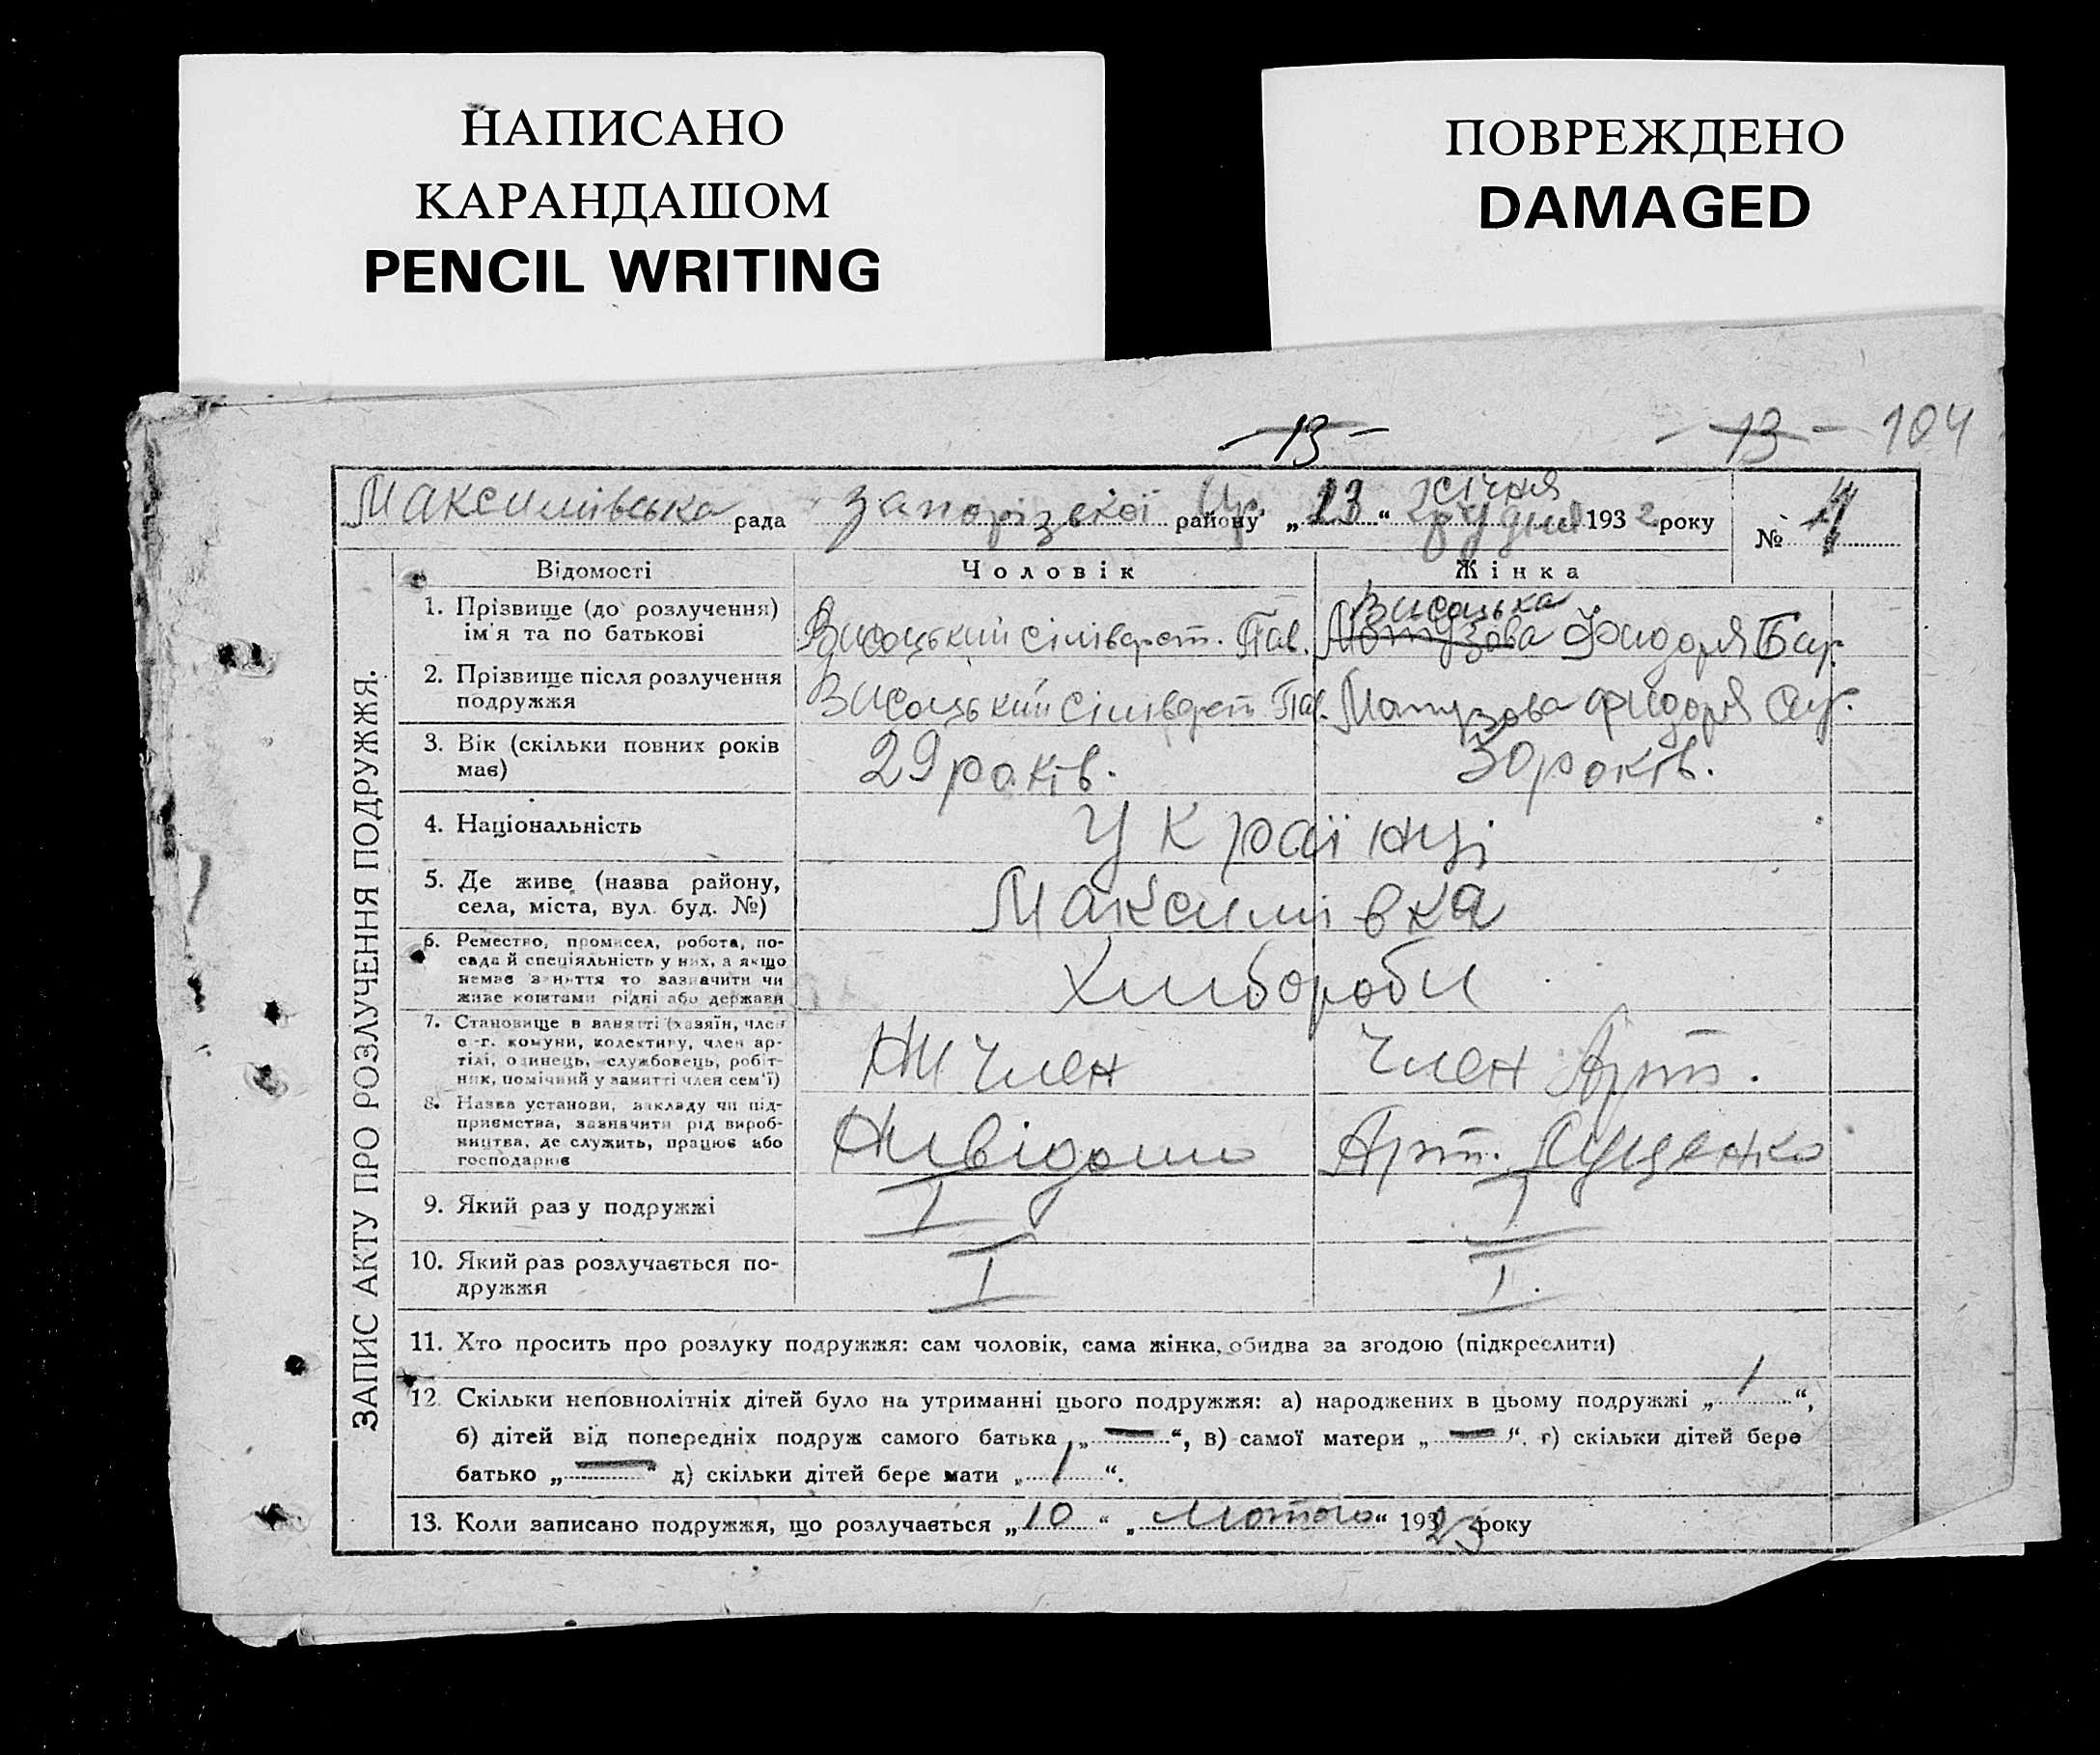 НАПИСАНО
КАРАНДАШОМ
PENCIL WRITING
ПОВРЕЖДЕНО
DAMAGED
— 13 — — 13 — 104
січня
Максимівська рада Запорізької району „13“ грудня 1932 року №
ЗАПИС АКТУ ПРО РОЗЛУЧЕННЯ ПОДРУЖЖЯ.
Відомості Чоловік Жінка
1. Прізвище (до розлучення) ім'я та по батькові
Висоцький Сіліверст. Пав.
Висоцька
Мотузова Фидоря
2. Прізвище після розлучення подружжя
Висоцький Сілівerст Пав. Мотузова Фидоря
3. Вік (скільки повних років має)
29 років. 30 років.
4. Національність
Українці
5. Де живе (назва району, села, міста, вул. буд. №)
Максимівка
6. Ремество, промисел, робота, по-
сада й спеціяльність у них, а якщо
немає заняття то зазначити чи
живе коштами рідні або держави
Хлибороби
7. Становище в занятті (хазяїн, член
с-г. комуни, колективу, член ар-
тілі, одинець, службовець, робіт-
ник, помічний у занятті член сем'ї)
Ни член Член Арт.
8. Назва установи, закладу чи під-
приємства, зазначити рід вироб-
ництва, де служить, працює або
господарює
Нивідомо Арт.
9. Який раз у подружжі I I
10. Який раз розлучається по-
дружжя I I.
11. Хто просить про розлуку подружжя: сам чоловік, сама жінка, обидва за згодою (підкреслити)
12. Скільки неповнолітніх дітей було на утриманні цього подружжя: а) народжених в цьому подружжі „1“,
б) дітей від попередніх подруж самого батька „—“, в) самої матери „—“. г) скільки дітей бере
батько „—“ д) скільки дітей бере мати „1“.
13. Коли записано подружжя, що розлучається „10“ „Лютого“ 1923 року